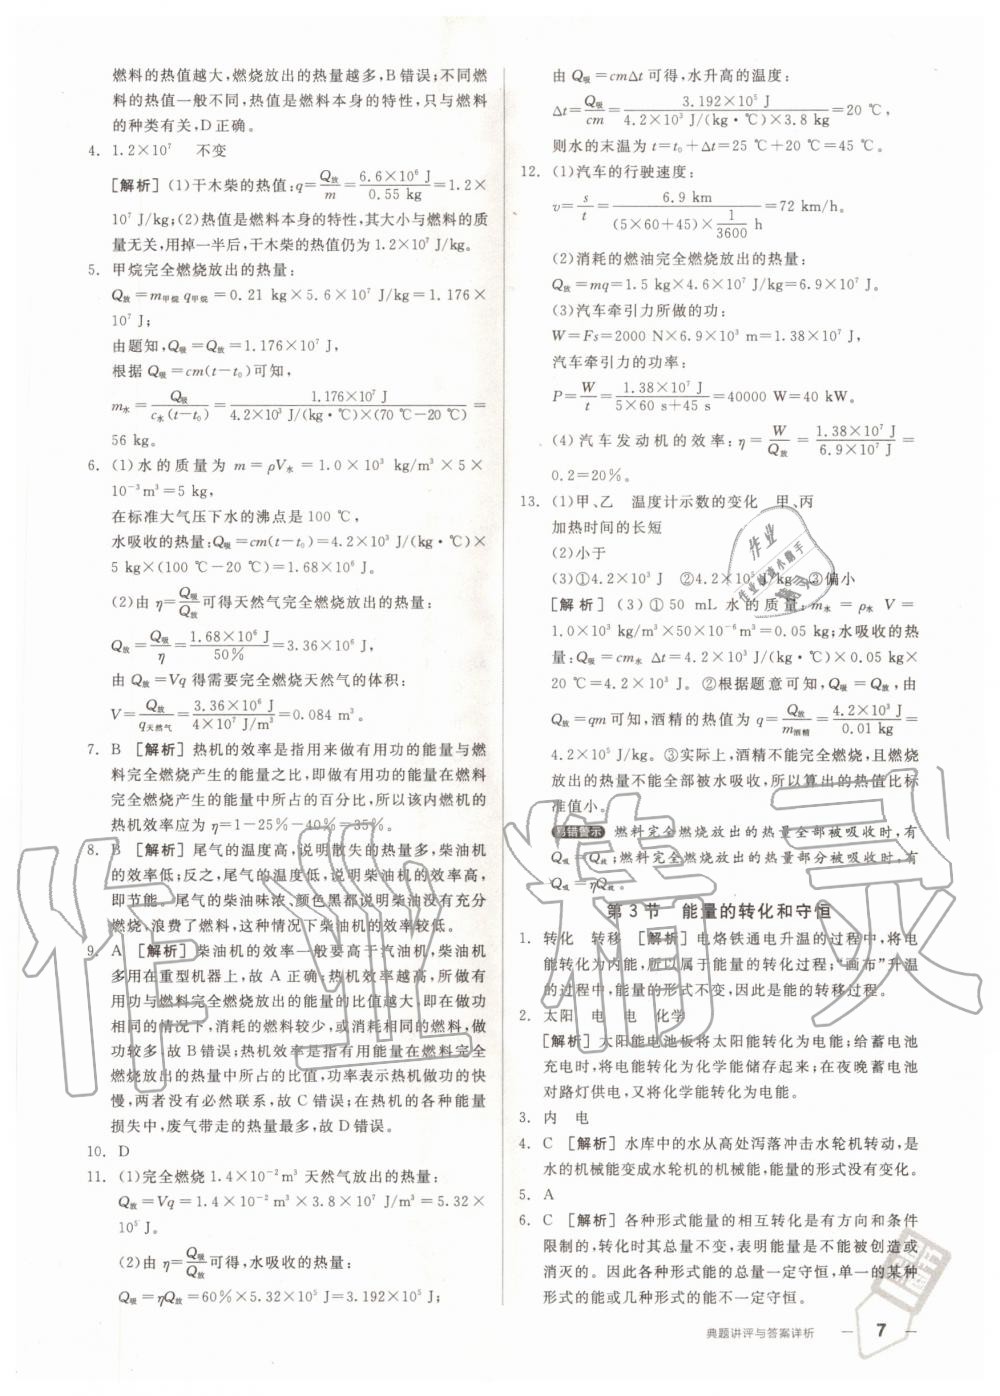 燃料的热值越大,燃烧放出的热量越多,B错误;不同燃
料的热值一般不同,热值是燃料本身的特性,只与燃料
的种类有关,D正确。
4. 1.2×10⁷ 不变
[解析] (1)干木柴的热值:q=Q放/m=6.6×10⁶ J/0.55 kg=1.2×
10⁷ J/kg;(2)热值是燃料本身的特性,其大小与燃料的质
量无关,用掉一半后,干木柴的热值仍为1.2×10⁷ J/kg。
5. 甲烷完全燃烧放出的热量:
Q放=m甲烷 q甲烷=0.21 kg×5.6×10⁷ J/kg=1.176×
10⁷ J;
由题知,Q吸=Q放=1.176×10⁷ J,
根据 Q吸=cm(t-t₀)可知,
m水=Q吸/c水(t-t₀)=1.176×10⁷ J/4.2×10³ J/(kg·℃)×(70 ℃-20 ℃)=
56 kg。
6. (1)水的质量为 m=ρV水=1.0×10³ kg/m³×5×
10⁻³m³=5 kg,
在标准大气压下水的沸点是100 ℃,
水吸收的热量:Q吸=cm(t-t₀)=4.2×10³ J/(kg·℃)×
5 kg×(100 ℃-20 ℃)=1.68×10⁶ J。
(2)由 η=Q吸/Q放可得天然气完全燃烧放出的热量:
Q放=Q吸/η=1.68×10⁶ J/50%=3.36×10⁶ J,
由 Q放=Vq 得需要完全燃烧天然气的体积:
V=Q放/q天然气=3.36×10⁶ J/4×10⁷ J/m³=0.084 m³。
7. B [解析] 热机的效率是指用来做有用功的能量与燃
料完全燃烧产生的能量之比,即做有用功的能量在燃料
完全燃烧产生的能量中所占的百分比,所以该内燃机的
热机效率应为 η=1-25%-40%=35%。
8. B [解析] 尾气的温度高,说明散失的热量多,柴油机
的效率低;反之,尾气的温度低,说明柴油机的效率高,
即节能。尾气的柴油味浓、颜色黑都说明柴油没有充分
燃烧、浪费了燃料,这种情况下柴油机的效率较低。
9. A [解析] 柴油机的效率一般要高于汽油机,柴油机
多用在重型机器上,故A正确;热机效率越高,所做有
用功与燃料完全燃烧放出的能量的比值越大,即在做功
相同的情况下,消耗的燃料较少,或消耗相同的燃料,做
功较多,故B错误;热机效率指有用能量在燃料完全
燃烧放出的热量中所占的比值,功率表示热机做功的快
慢,两者没有必然联系,故C错误;在热机的各种能量
损失中,废气带走的热量最多,故D错误。
10. D
11. (1)完全燃烧1.4×10⁻²m³ 天然气放出的热量:
Q放=Vq=1.4×10⁻² m³×3.8×10⁷ J/m³=5.32×
10⁵ J。
(2)由 η=Q吸/Q放 可得,水吸收的热量:
Q吸=ηQ放=60%×5.32×10⁵ J=3.192×10⁵ J;
由 Q吸=cmΔt 可得,水升高的温度:
Δt=Q吸/cm=3.192×10⁵ J/4.2×10³ J/(kg·℃)×3.8 kg=20 ℃,
则水的末温为 t=t₀+Δt=25 ℃+20 ℃=45 ℃。
12. (1)汽车的行驶速度:
v=s/t=6.9 km/(5×60+45)×1/3600 h=72 km/h。
(2)消耗的燃油完全燃烧放出的热量:
Q放=mq=1.5 kg×4.6×10⁷ J/kg=6.9×10⁷ J。
(3)汽车牵引力所做的功:
W=Fs=2000 N×6.9×10³ m=1.38×10⁷ J,
汽车牵引力的功率:
P=W/t=1.38×10⁷ J/5×60 s+45 s=40000 W=40 kW。
(4)汽车发动机的效率:η=W/Q放=1.38×10⁷ J/6.9×10⁷ J=
0.2=20%。
13. (1)甲、乙 温度计示数的变化 甲、丙
加热时间的长短
(2)小于
(3)①4.2×10³ J ②4.2×10⁵ J/kg ③偏小
[解析] (3)①50 mL水的质量:m水=ρ水 V=
1.0×10³ kg/m³×50×10⁻⁶m³=0.05 kg;水吸收的热
量:Q吸=cm水 Δt=4.2×10³ J/(kg·℃)×0.05 kg×
20 ℃=4.2×10³ J。②根据题意可知,Q吸=Q放,由
Q放=qm可知,酒精的热值为 q=Q放/m酒精=4.2×10³ J/0.01 kg=
4.2×10⁵ J/kg。③实际上,酒精不能完全燃烧,且燃烧
放出的热量不能全部被水吸收,所以算出的热值比标
准值小。
易错警示 燃料完全燃烧放出的热量全部被吸收时,有
Q吸=Q放;燃料完全燃烧放出的热量部分被吸收时,有
Q吸=ηQ放。
第3节 能量的转化和守恒
1. 转化 转移 [解析] 电烙铁通电升温的过程中,将电
能转化为内能,所以属于能量的转化过程;“画布”升温
的过程中,能量的形式不变,因此是能的转移过程。
2. 太阳 电 电 化学
[解析] 太阳能电池板将太阳能转化为电能;给蓄电池
充电时,将电能转化为化学能储存起来;在夜晚蓄电池
对路灯供电,又将化学能转化为电能。
3. 内 电
4. C [解析] 水库中的水从高处泻落冲击水轮机转动,是
水的机械能变成水轮机的机械能,能量的形式没有变化。
5. A
6. C [解析] 各种形式能量的相互转化是有方向和条件
限制的,转化时其总量不变,表明能量是不能被创造或
消灭的。因此各种形式能的总量一定守恒,单一的某种
形式的能或几种形式的能不一定守恒。
典题讲评与答案详析 — 7 —
作业精灵